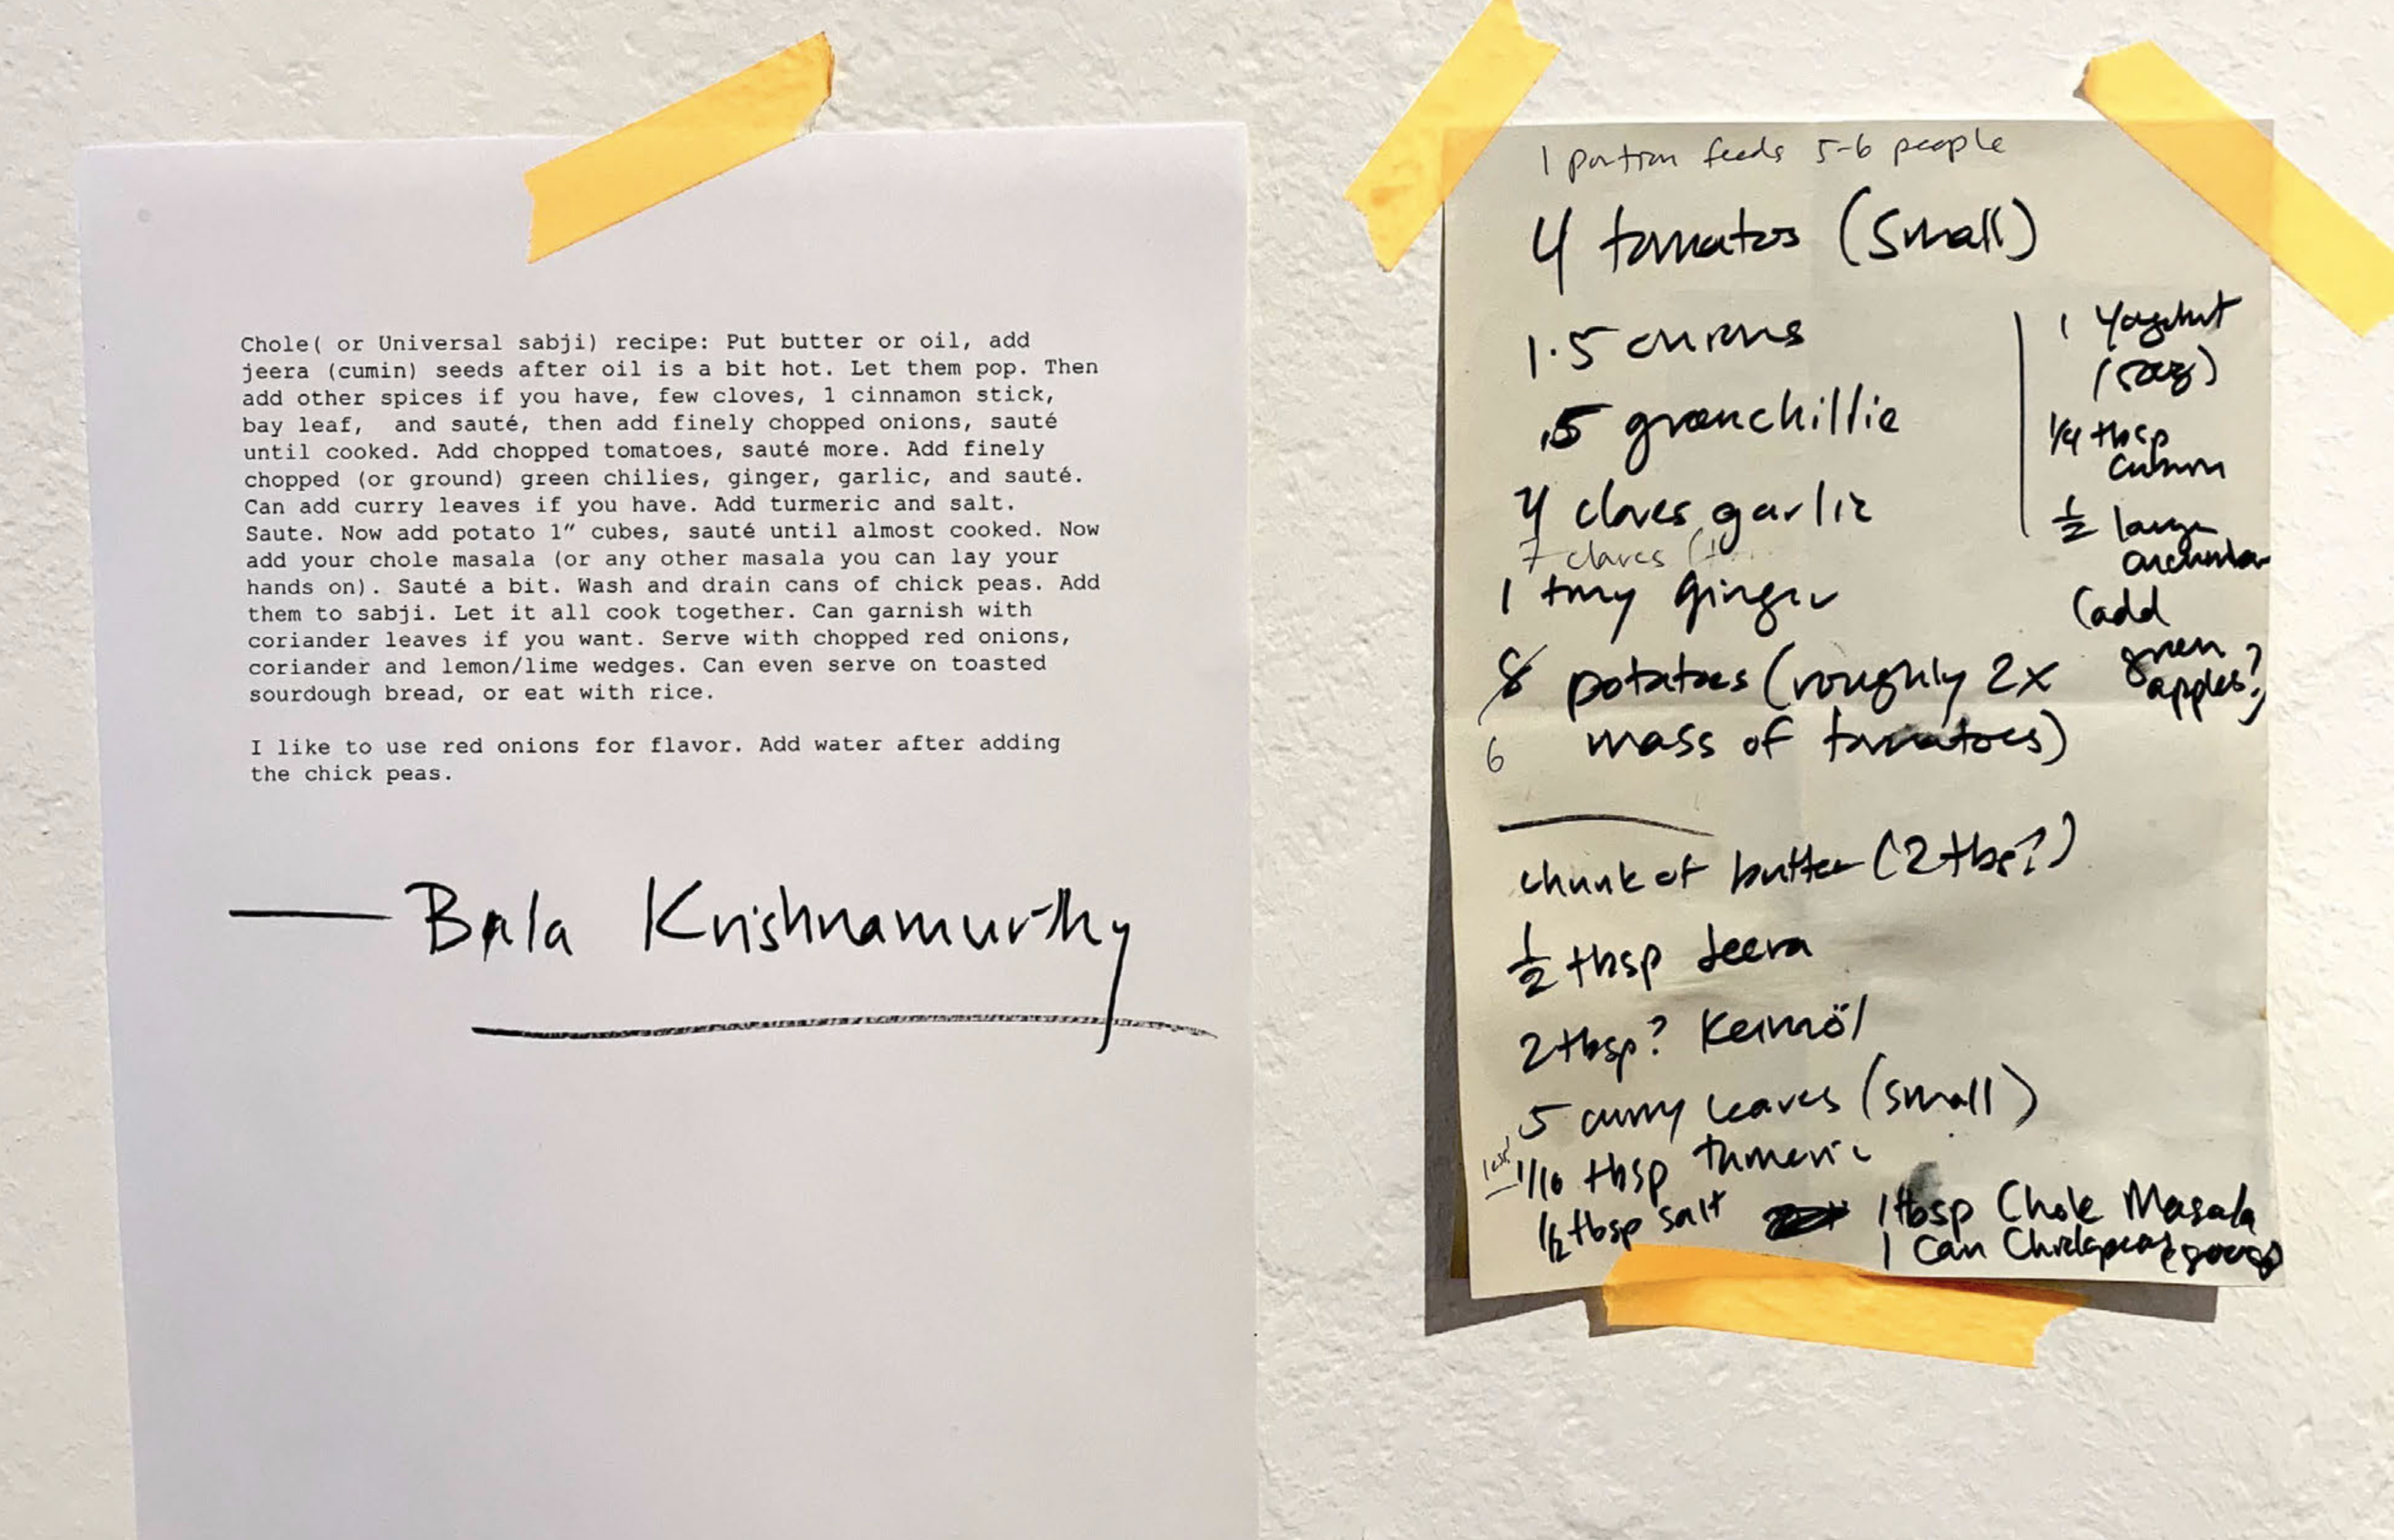 Chole( or Universal sabji) recipe: Put butter or oil, add
jeera (cumin) seeds after oil is a bit hot. Let them pop. Then
add other spices if you have, few cloves, 1 cinnamon stick,
bay leaf,  and sauté, then add finely chopped onions, sauté
until cooked. Add chopped tomatoes, sauté more. Add finely
chopped (or ground) green chilies, ginger, garlic, and sauté.
Can add curry leaves if you have. Add turmeric and salt.
Saute. Now add potato 1” cubes, sauté until almost cooked. Now
add your chole masala (or any other masala you can lay your
hands on). Sauté a bit. Wash and drain cans of chick peas. Add
them to sabji. Let it all cook together. Can garnish with
coriander leaves if you want. Serve with chopped red onions,
coriander and lemon/lime wedges. Can even serve on toasted
sourdough bread, or eat with rice.
I like to use red onions for flavor. Add water after adding
the chick peas.
— Bala Krishnamurthy
1 portion feeds 5-6 people
4 tomatos (small)
1.5 onions
.5 greenchillie
4 cloves garlic
7 cloves
1 tiny ginger
8 potatoes (roughly 2x
6 mass of tomatoes)
1 Yoghurt
1/4 tbsp
cumin
1/2 large
cucumber
(add
green
apples?)
chunk of butter (2 tbs?)
1/2 tbsp Jeera
2 tbsp? Keimöl
5 curry leaves (small)
1/10 tbsp tumeric
1/2 tbsp salt
1 tbsp Chole Masala
1 Can Chickpeas